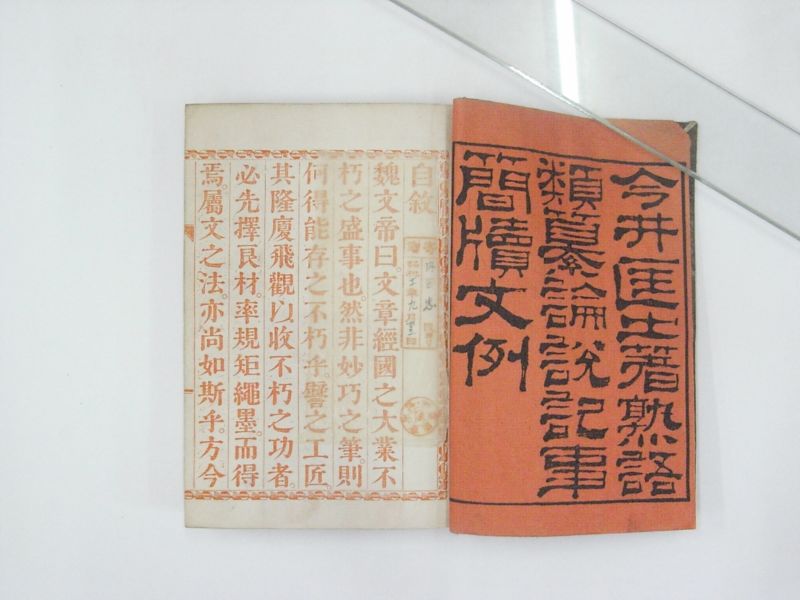 今井匡之著熟語
類纂論説記事
簡牘文例
自敘
魏文帝曰。文章經國之大業不
朽之盛事也。然非妙巧之筆。則
何得能存之不朽乎。譬之工匠。
其隆廈飛觀以收不朽之功者。
必先擇良材。率規矩繩墨。而得
焉。屬文之法。亦尚如斯乎。方今